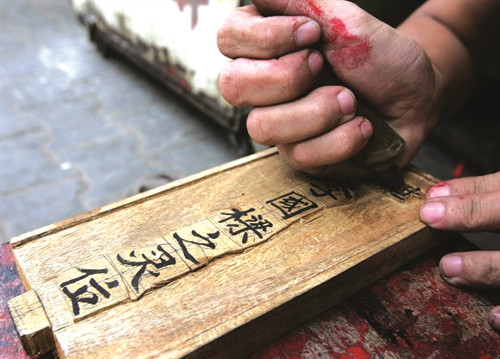 國樑之灵位